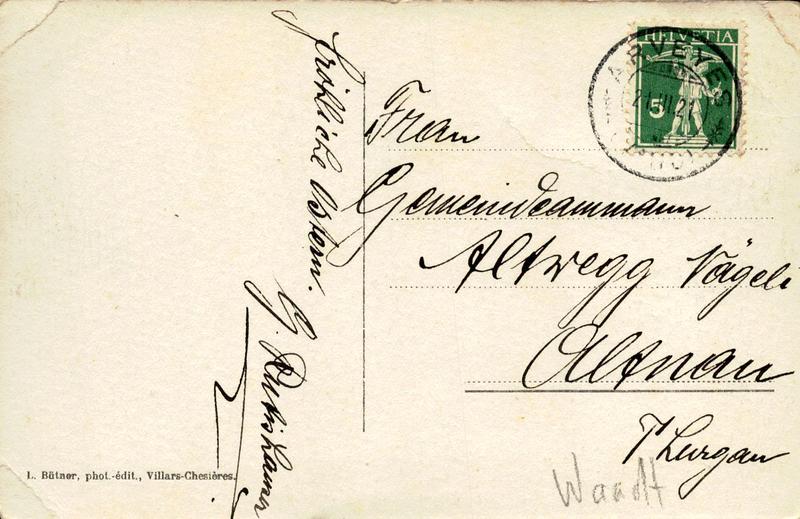 Fröhliche Ostern.
G. Rutishauser
HELVETIA
5
ARVEYES
Frau
Gemeindeammann
Altwegg Vägeli
Altnau
Thurgau
Waadt
L. Bütner, phot.-édit., Villars-Chesières.